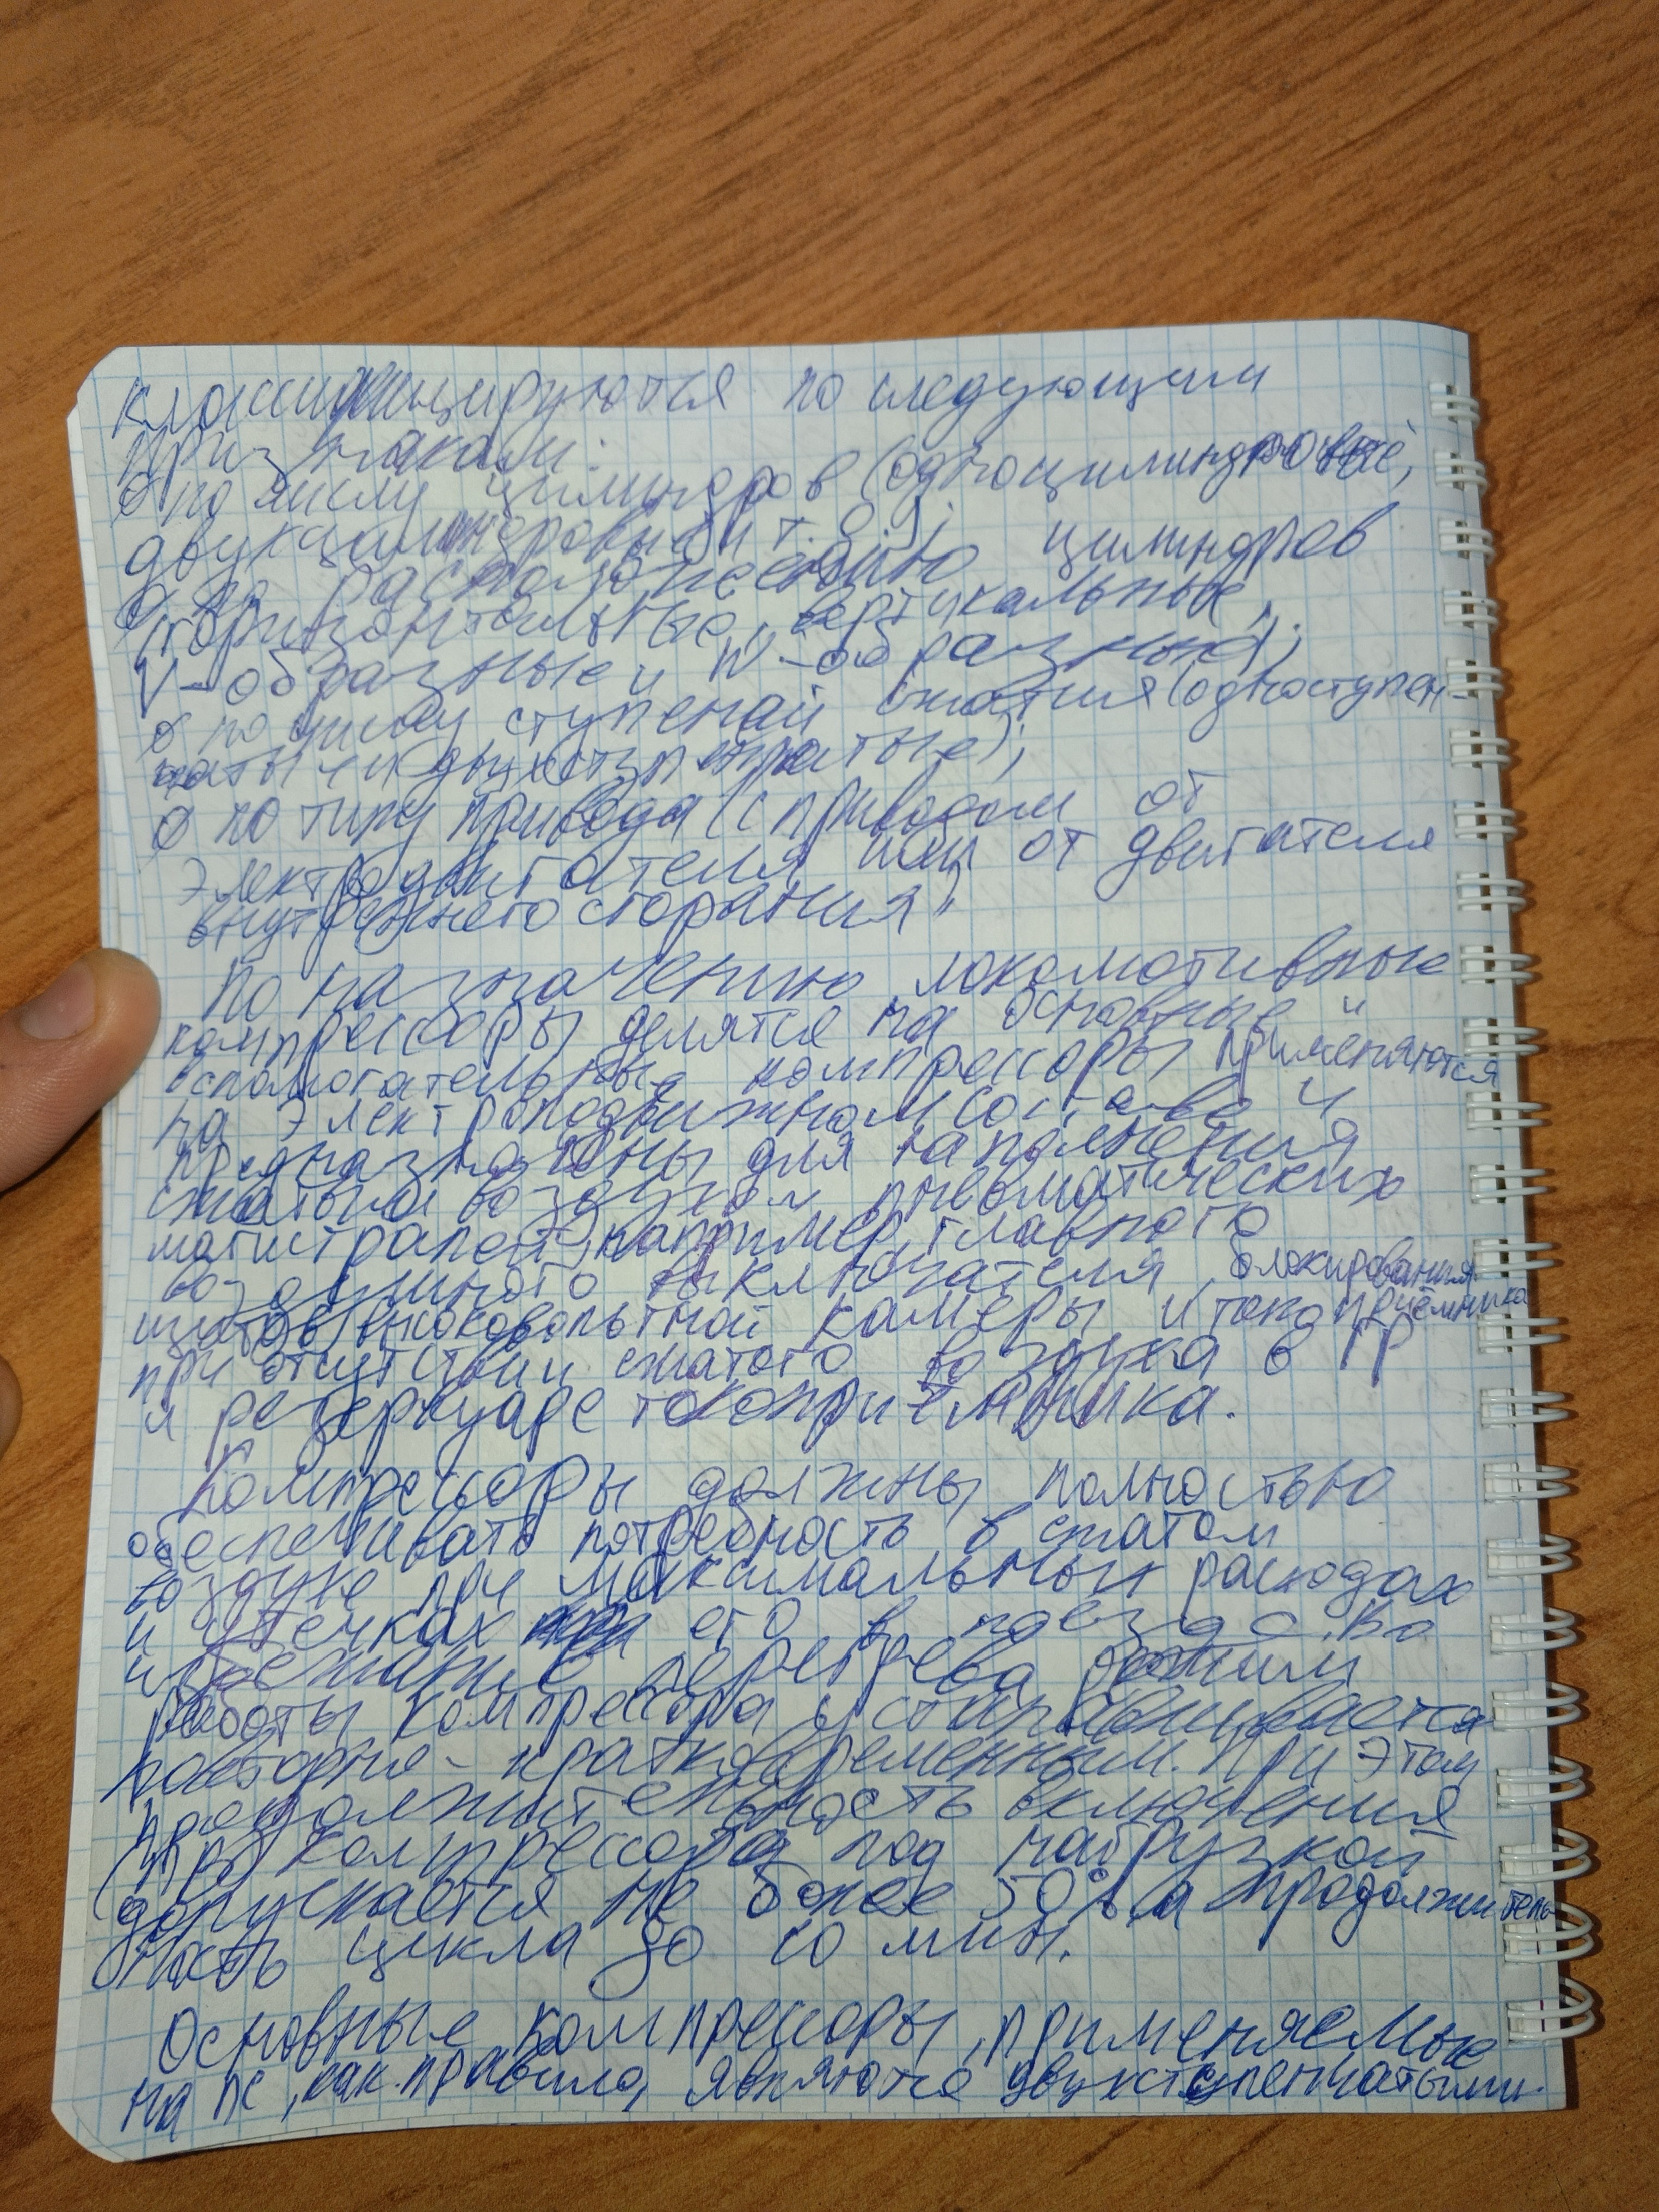 классифицируются по следующим
признакам:
о по числу цилиндров (одноцилиндровые,
двухцилиндровые и т. д.);
о по расположению цилиндров
(горизонтальные, вертикальные,
V-образные и W-образные);
о по числу ступеней сжатия (одноступен-
чатые и двухступенчатые);
о по типу привода (с приводом от
электродвигателя или от двигателя
внутреннего сгорания)
По назначению локомотивные
компрессоры делятся на основные и
вспомогательные компрессоры применяются
на электроподвижном составе и
предназначены для наполнения
сжатым воздухом пневматических
магистралей, например, главного
воздушного выключателя, блокирования
щитов высоковольтной камеры и токоприёмника
при отсутствии сжатого воздуха в ГР
и резервуаре токоприёмника.
Компрессоры должны полностью
обеспечивать потребность в сжатом
воздухе при максимальных расходах
и утечках его в поездас. Во
избежание перегрева режим
работы компрессора устанавливается
повторно-кратковременным. При этом
продолжительность включения
(ПВ) компрессора под нагрузкой
допускается не более 50%, а продолжитель
ность цикла до 10 мин.
Основные компрессоры, применяемые
на ПС, как правило, являются двухступенчатыми.